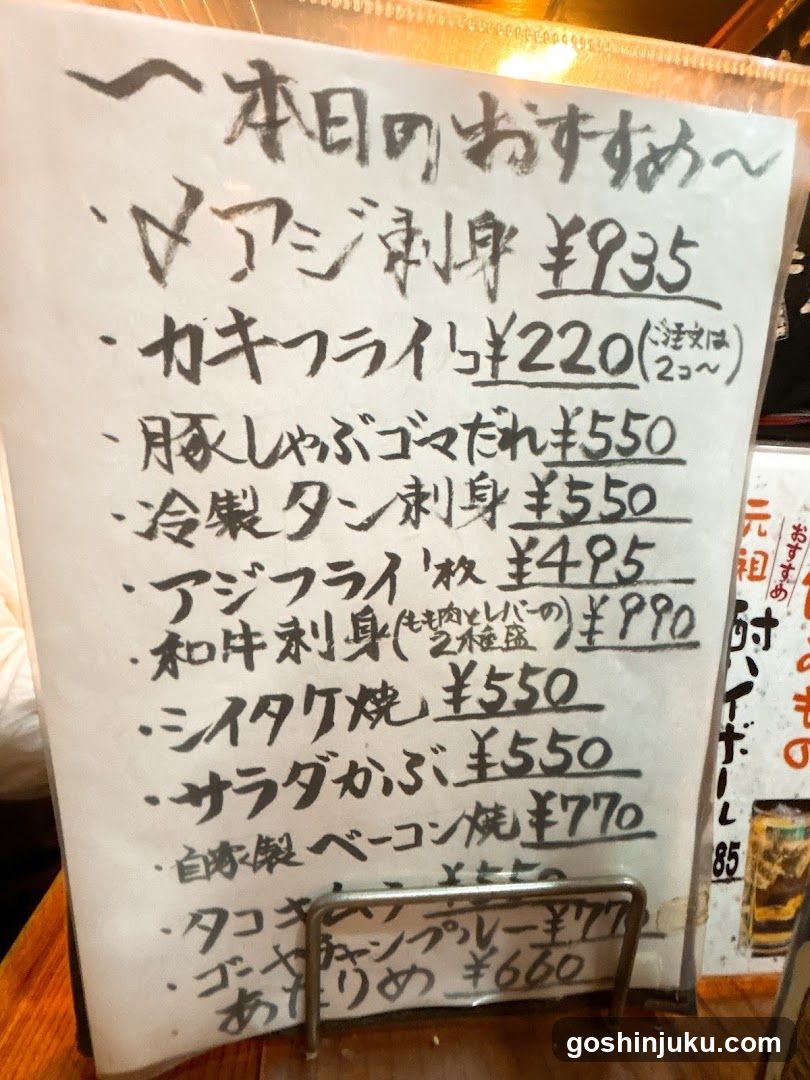 〜本日のおすすめ〜
・〆アジ刺身 ¥935
・カキフライ1コ¥220(ご注文は2コ〜)
・豚しゃぶゴマだれ¥550
・冷製タン刺身¥550
・アジフライ1枚 ¥495
・和牛刺身(もも肉とレバーの2種盛)¥990
・シイタケ焼 ¥550
・サラダかぶ ¥550
・自家製ベーコン焼 ¥770
・タコキムチ ¥550
・ゴーヤチャンプルー¥770
・あたりめ ¥660
おすすめ
元祖
酎ハイボール
85
のもの
goshinjuku.com